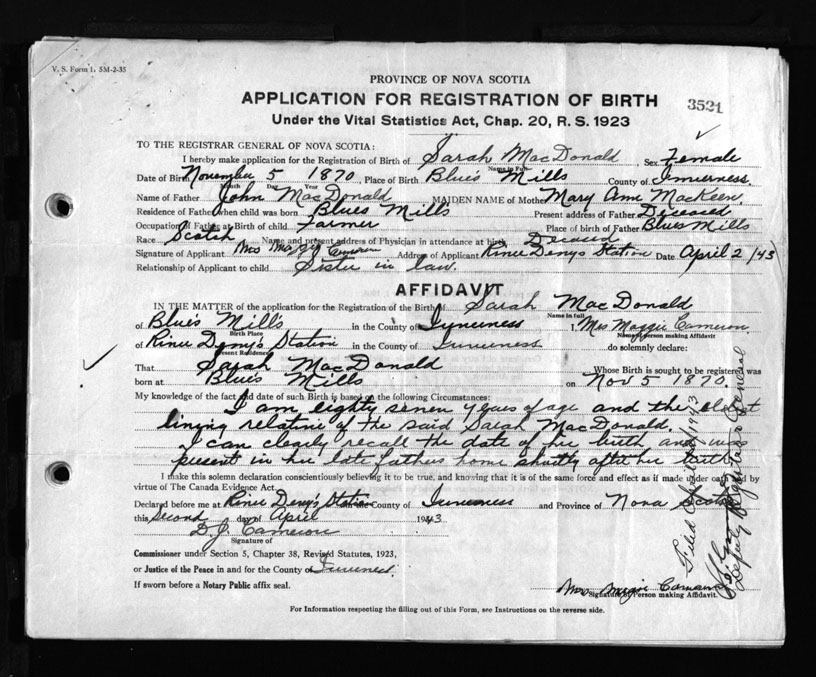 V. S. Form 1. 5M-2-35
PROVINCE OF NOVA SCOTIA
APPLICATION FOR REGISTRATION OF BIRTH
3531
Under the Vital Statistics Act, Chap. 20, R. S. 1923
TO THE REGISTRAR GENERAL OF NOVA SCOTIA:
I hereby make application for the Registration of Birth of Sarah MacDonald, Sex Female
Name in Full
Date of Birth November 5 1870, Place of Birth Blue's Mills County of Inverness.
Month Day Year
Name of Father John MacDonald MAIDEN NAME of Mother Mary Ann MacKeen
Residence of Father when child was born Blues Mills Present address of Father Deceased
Occupation of Father at Birth of child Farmer Place of birth of Father Blues Mills
Race Scotch Name and present address of Physician in attendance at birth Deceased
Signature of Applicant Mrs Cameron Address of Applicant River Denys Station Date April 2 /43
Relationship of Applicant to child Sister in law.
AFFIDAVIT
IN THE MATTER of the application for the Registration of the Birth of Sarah MacDonald
Name in full
of Blue's Mills in the County of Inverness I, Mrs Maggie Cameron
Birth Place Name of person making Affidavit
of River Deny's Station in the County of Inverness do solemnly declare:
Present Residence
That Sarah MacDonald Whose Birth is sought to be registered was
born at Blues Mills on Nov 5 1870.
My knowledge of the fact and date of such Birth is based on the following Circumstances:
I am eighty seven years of age and the oldest
living relative of the said Sarah MacDonald.
I can clearly recall the date of her birth and was
present in her late fathers home shortly after her birth
I make this solemn declaration conscientiously believing it to be true, and knowing that it is of the same force and effect as if made under oath and by
virtue of The Canada Evidence Act.
Declared before me at River Deny's Station in the County of Inverness and Province of Nova Scotia
this Second day of April 1943
D. J. Cameron
Signature of
Commissioner under Section 5, Chapter 38, Revised Statutes, 1923,
or Justice of the Peace in and for the County of Inverness.
If sworn before a Notary Public affix seal.
Mrs Cameron
Signature of Person making Affidavit.
For Information respecting the filling out of this Form, see Instructions on the reverse side.
Filed 1943
Deputy Registrar General